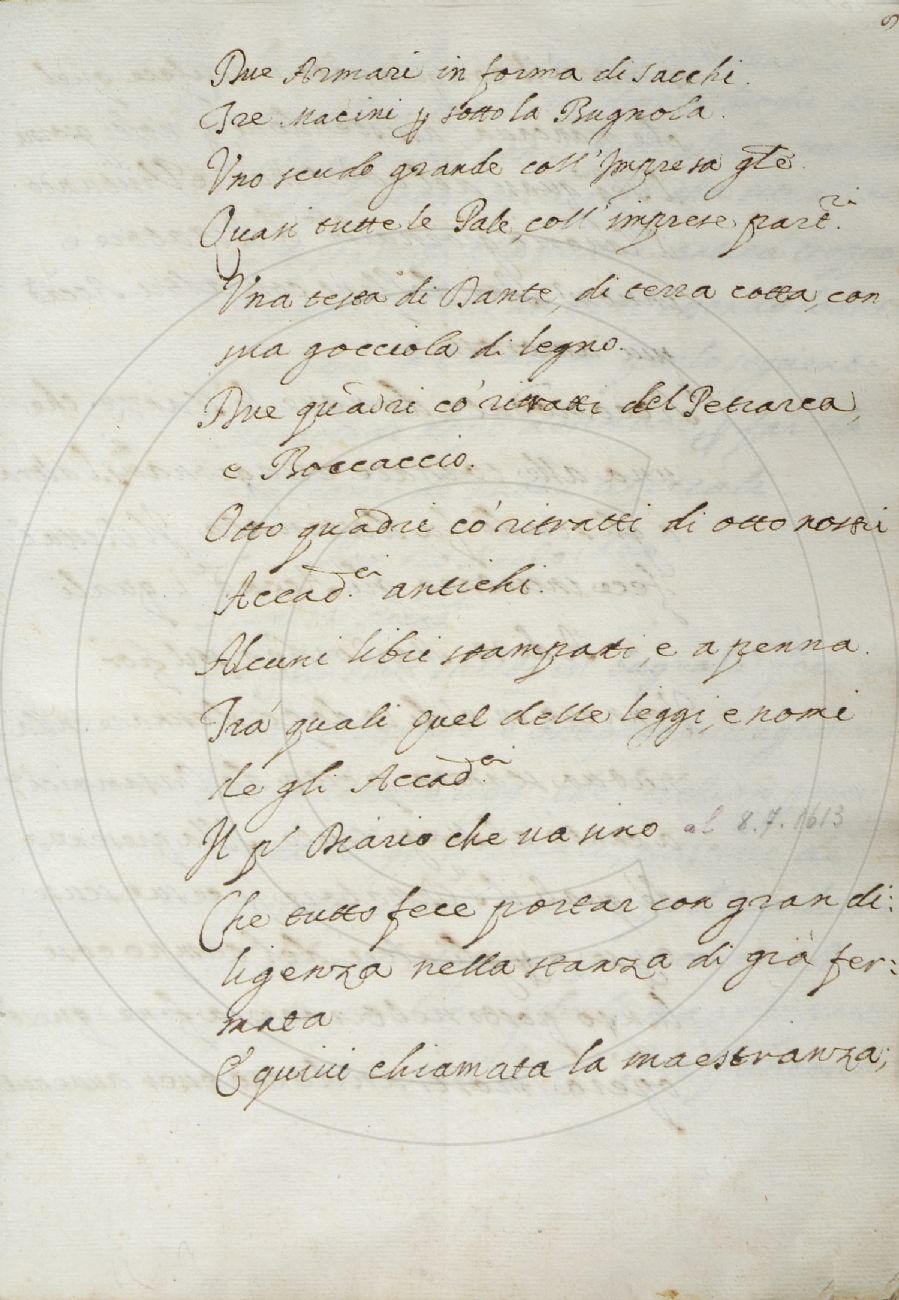 9
Due Armari in forma di sacchi.
Tre Macini p sotto la Bugnola.
Uno scudo grande coll'Impresa gl̃e.
Quasi tutte le Pale, coll'imprese part.ri
Una testa di Dante, di terra cotta, con
sua gocciola di legno.
Due quadri có ritratti del Petrarca,
e Boccaccio.
Otto quadri có ritratti di otto nostri
Accad.ci antichi.
Alcuni libri stampati, e a penna.
Trá quali quel delle leggi, e nomi
de gli Accad.ci
Il p.º Diario che va sino al 8.7.1613
Che tutto fece portar con gran di:
ligenza nella stanza di già fer:
mata
E quivi chiamata la maestranza,